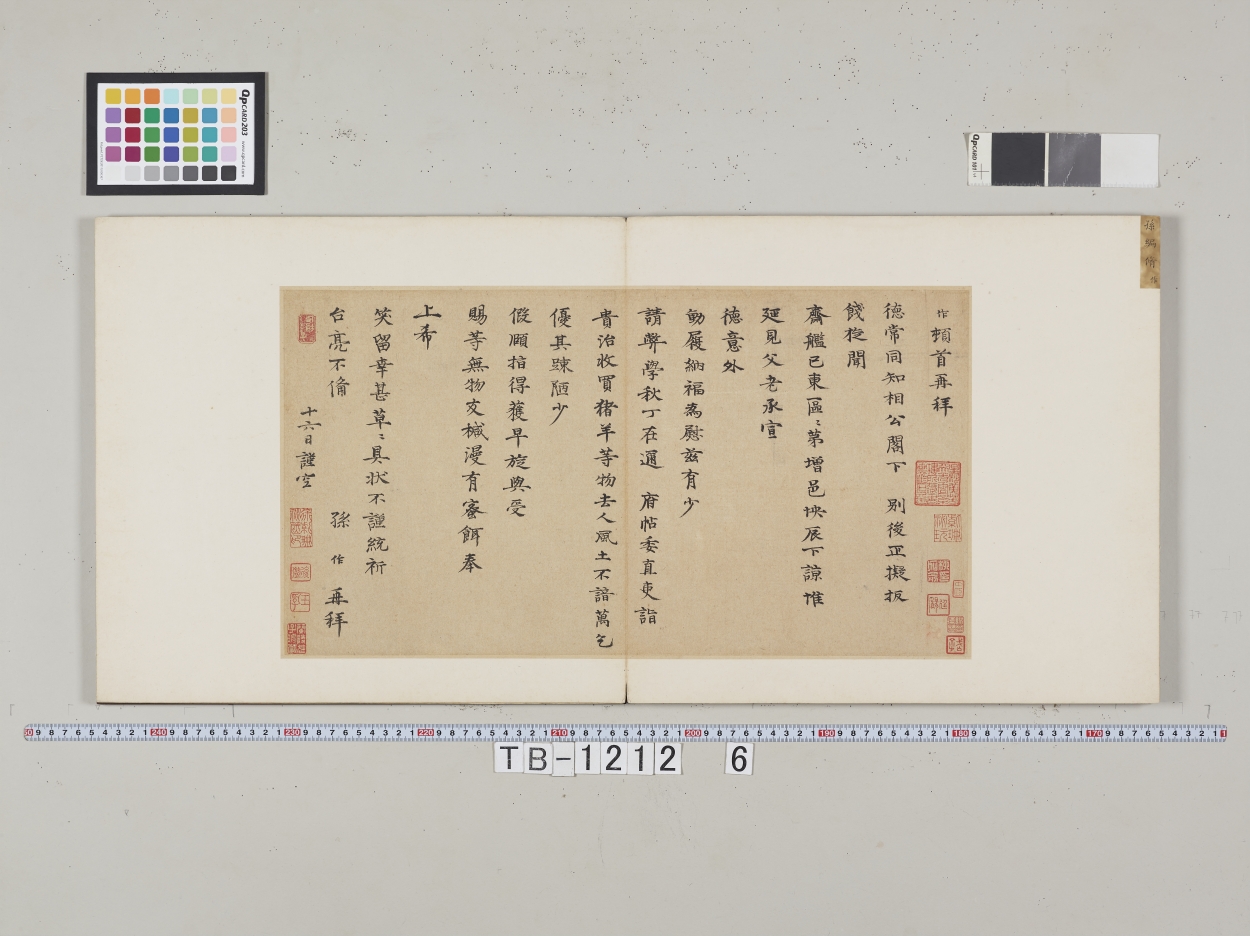 作頓首再拜
德常同知相公閣下 別後正擬扳
餞旋聞
齋艦已東區〻第增邑怏辰下諒惟
延見父老承宣
德意外
動履納福為慰茲有少
請聲學秋丁在邇 府帖委直吏詣
貴治收買猪羊等物去人風土不諳萬乞
優其疎陋少
假頤指得獲早旋與受
賜等無物友椷漫有蜜餌奉
上希
笑留幸甚草〻具狀不謹統祈
台亮不俻 孫作再拜
十六日謹空
QpCARD 203
QpCARD 101
TB-1212 6